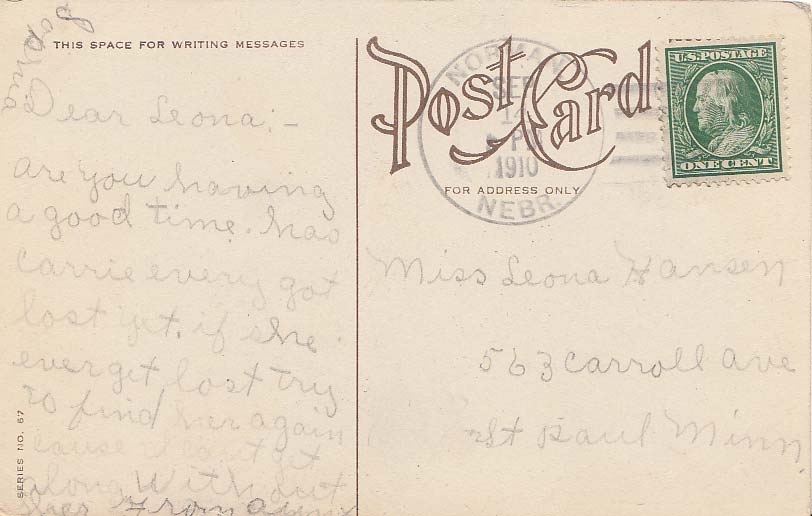 THIS SPACE FOR WRITING MESSAGES
Dear Leona:-
are you having
a good time. has
carrie every got
lost yet. if she
ever get lost try
to find her again
cause I can't get
along without
her From
SERIES NO. 67
Post Card
FOR ADDRESS ONLY
NORMAN
SEP
14
PM
1910
NEBR.
U.S. POSTAGE
ONE CENT
Miss Leona Hansen
563 Carroll Ave
St Paul Minn